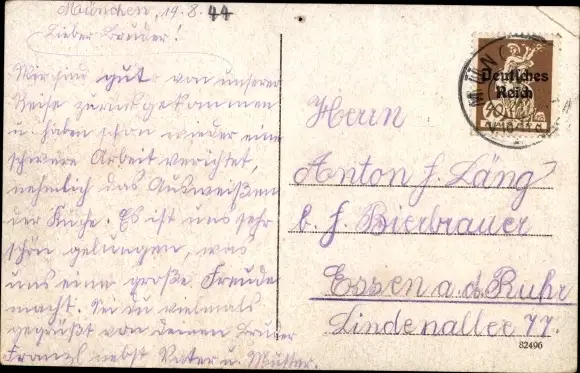 München, 19.8.44
Lieber Bruder!
Wir sind gut von unserer
Reise zurückgekommen
u. haben schon wieder eine
schwere Arbeit verichtet,
nehmlich das Ausweißen
der Küche. Es ist uns sehr
schön gelungen, was
uns eine große Freude
macht. Sei du vielmals
gegrüßt von deinen Bruder
Franzl nebst Vater u. Mutter.
MÜN
Deutsches
Reich
Herrn
Anton f. Läng
b. f. Bierbrauer
Essen a. d. Ruhr
Lindenallee 77.
82496